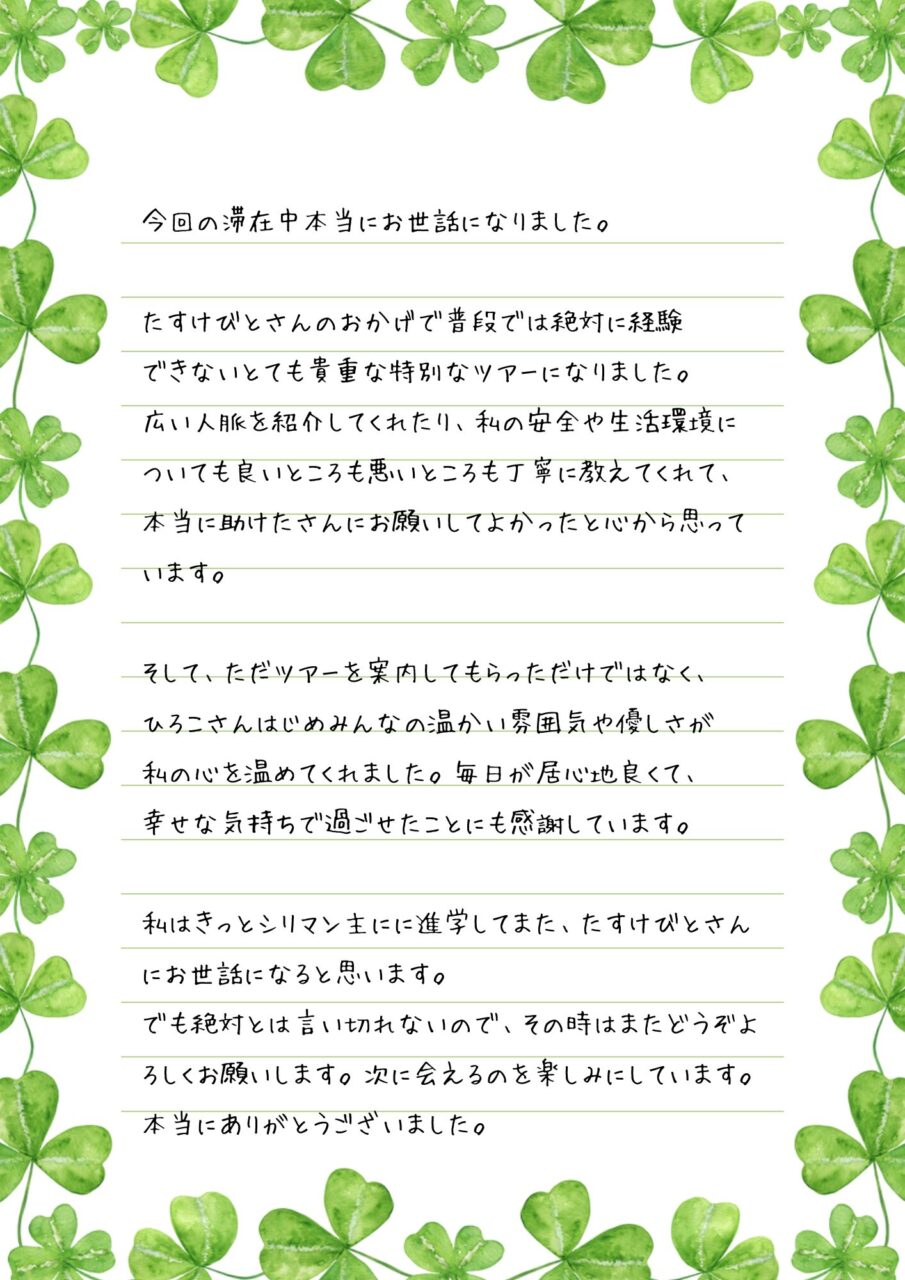 今回の滞在中本当にお世話になりました。
たすけびとさんのおかげで普段では絶対に経験
できないとても貴重な特別なツアーになりました。
広い人脈を紹介してくれたり、私の安全や生活環境に
ついても良いところも悪いところも丁寧に教えてくれて、
本当に助けたさんにお願いしてよかったと心から思って
います。
そして、ただツアーを案内してもらっただけではなく、
ひろこさんはじめみんなの温かい雰囲気や優しさが
私の心を温めてくれました。毎日が居心地良くて、
幸せな気持ちで過ごせたことにも感謝しています。
私はきっとシリマン主にに進学してまた、たすけびとさん
にお世話になると思います。
でも絶対とは言い切れないので、その時はまたどうぞよ
ろしくお願いします。次に会えるのを楽しみにしています。
本当にありがとうございました。